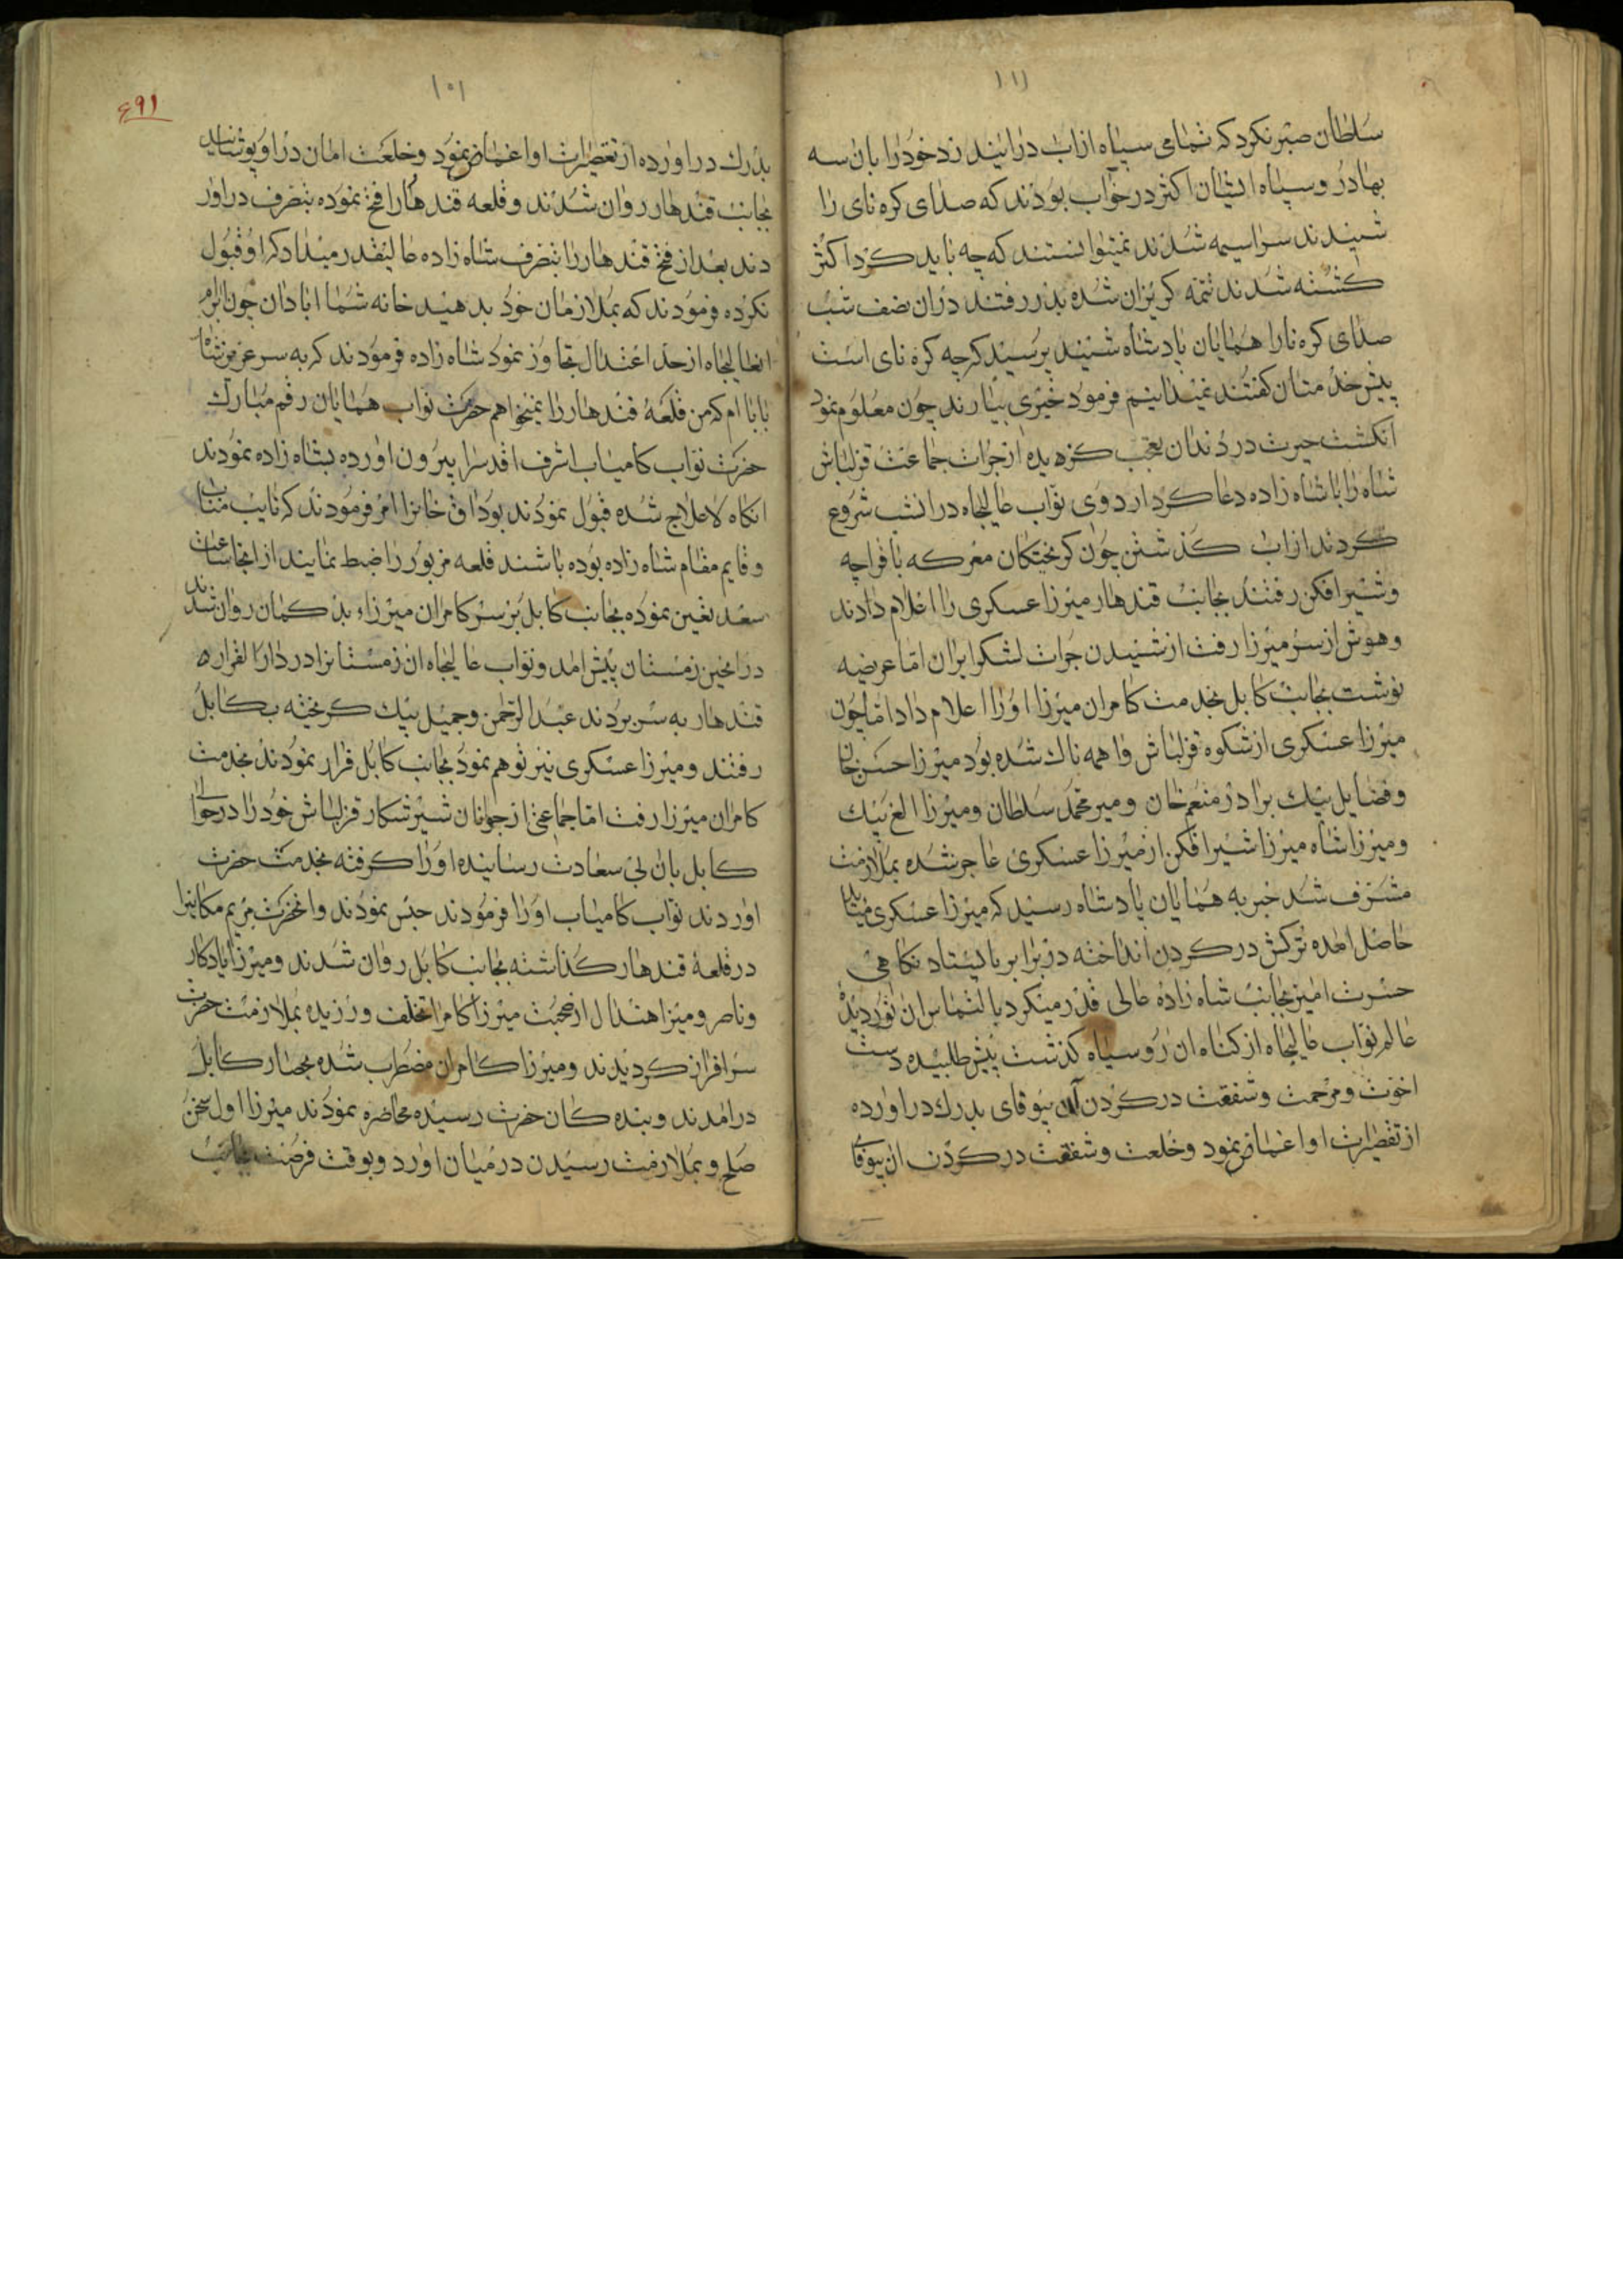 ۱۱۱
سلطان صبر نکرد که تمامی سپاه از اب درایند زد خود را بان سه
بهادر و سپاه ایشان اکثر در خواب بودند که صدای کره نای را
شنیدند سراسیمه شدند نمیتوانستند که چه باید کرد اکثر
کشته شدند تتمه کریزان شده بدر رفتند دران نصف شب
صدای کره نا را همایان پادشاه شنیند پرسید که چه کره نای است
پیش خدمتان کفتند نمیدانیم فرمود خبری بیارند چون معلوم نمود
انکشت حیرت در دندان تعجب کزیده از جرات جماعت قزلباش
شاه را با شاه زاده دعا کرد اردوی نواب عالیجاه در انشب شروع
کردند از اب کذشتن چون کریختکان معرکه با قراچه
و شیرافکن رفتند بجانب قندهار میرزا عسکری را اعلام دادند
و هوش از سر میرزا رفت از شنیدن جرات لشکر ایران اما عریضه
نوشت بجانب کابل بخدمت کامران میرزا اورا اعلام داد اما چون
میرزا عسکری از شکوه قزلباش واهمه ناک شده بود میرزا حسن خان
و فضایل بیک برادر منعم خان و میر محمد سلطان و میرزا الغ بیک
و میرزا شاه میرزا شیرافکن از میرزا عسکری عاجر شده بملازمت
مشرف شد خبر به همایان پادشاه رسید که میرزا عسکری
حاصل امده ترکش در کردن انداخته در برابر بایستاد نکاهی
حسرت امیز بجانب شاه زاده عالی قدر میکرد بالتماس ان نور دیده
عالم نواب عالیجاه از کناه ان روسیاه کذشت پیش طلبیده دست
اخوت و مرحمت و شفقت در کردن ان بیوفای بدرک دراورده
از تقصیرات او اغماض نمود و خلعت و شفقت در کردن ان بیوفای
۱۰۱
۴۹۱
بدرک دراورده از تقصیرات او اغماض نمود و خلعت امان در او پوشانید
بجانب قندهار روان شدند و قلعه قندهار را فتح نموده بتصرف دراور
دند بعد از فتح قندهار را بتصرف شاه زاده عالیقدر میداد که او قبول
نکرده فرمودند که بملازمان خود بدهید خانه شما ابادان چون ابرام
انعالیجاه از حد اعتدال تجاوز نمود شاه زاده فرمودند که به سر عزیز شاه
بابا ام که من قلعهٔ قندهار را نمیخواهم حضرت نواب همایان رقم مبارک
حضرت نواب کامیاب اشرف اقدس را بیرون اورده بشاه زاده نمودند
انکاه لاعلاج شده قبول نمودند بوداق خانرا امر فرمودند که نایب مناب
و قایم مقام شاه زاده بوده باشند قلعه مزبور را ضبط نمایند از انجا ساعت
سعد تعین نموده بجانب کابل بر سر کامران میرزاء بد کمان روان شدند
در انحین زمستان پیش امد و نواب عالیجاه ان زمستانرا در دارالقرار
قندهار به سر بردند عبدالرحمن و جمیل بیک کریخته بکابل
رفتند و میرزا عسکری نیز توهم نمود بجانب کابل فرار نمودند بخدمت
کامران میرزا رفت اما جماعتی از جوانان شیر شکار قزلباش خود را در حوالی
کابل بان بی سعادت رسانیده اورا کرفته بخدمت حضرت
اوردند نواب کامیاب اورا فرمودند حبس نمودند وانحضرت مریم مکانیرا
در قلعهٔ قندهار کذاشته بجانب کابل روان شدند و میرزا یادکار
و ناصر و میرزا هندال از صحبت میرزا کامران تخلف ورزیده بملازمت حضرت
سرافراز کردیدند و میرزا کامران مضطرب شده بحصار کابل
درامدند و بنده کان حضرت رسیده محاصره نمودند میرزا اول سخن
صلح و بملازمت رسیدن در میان اورد و بوقت فرصت بجانب